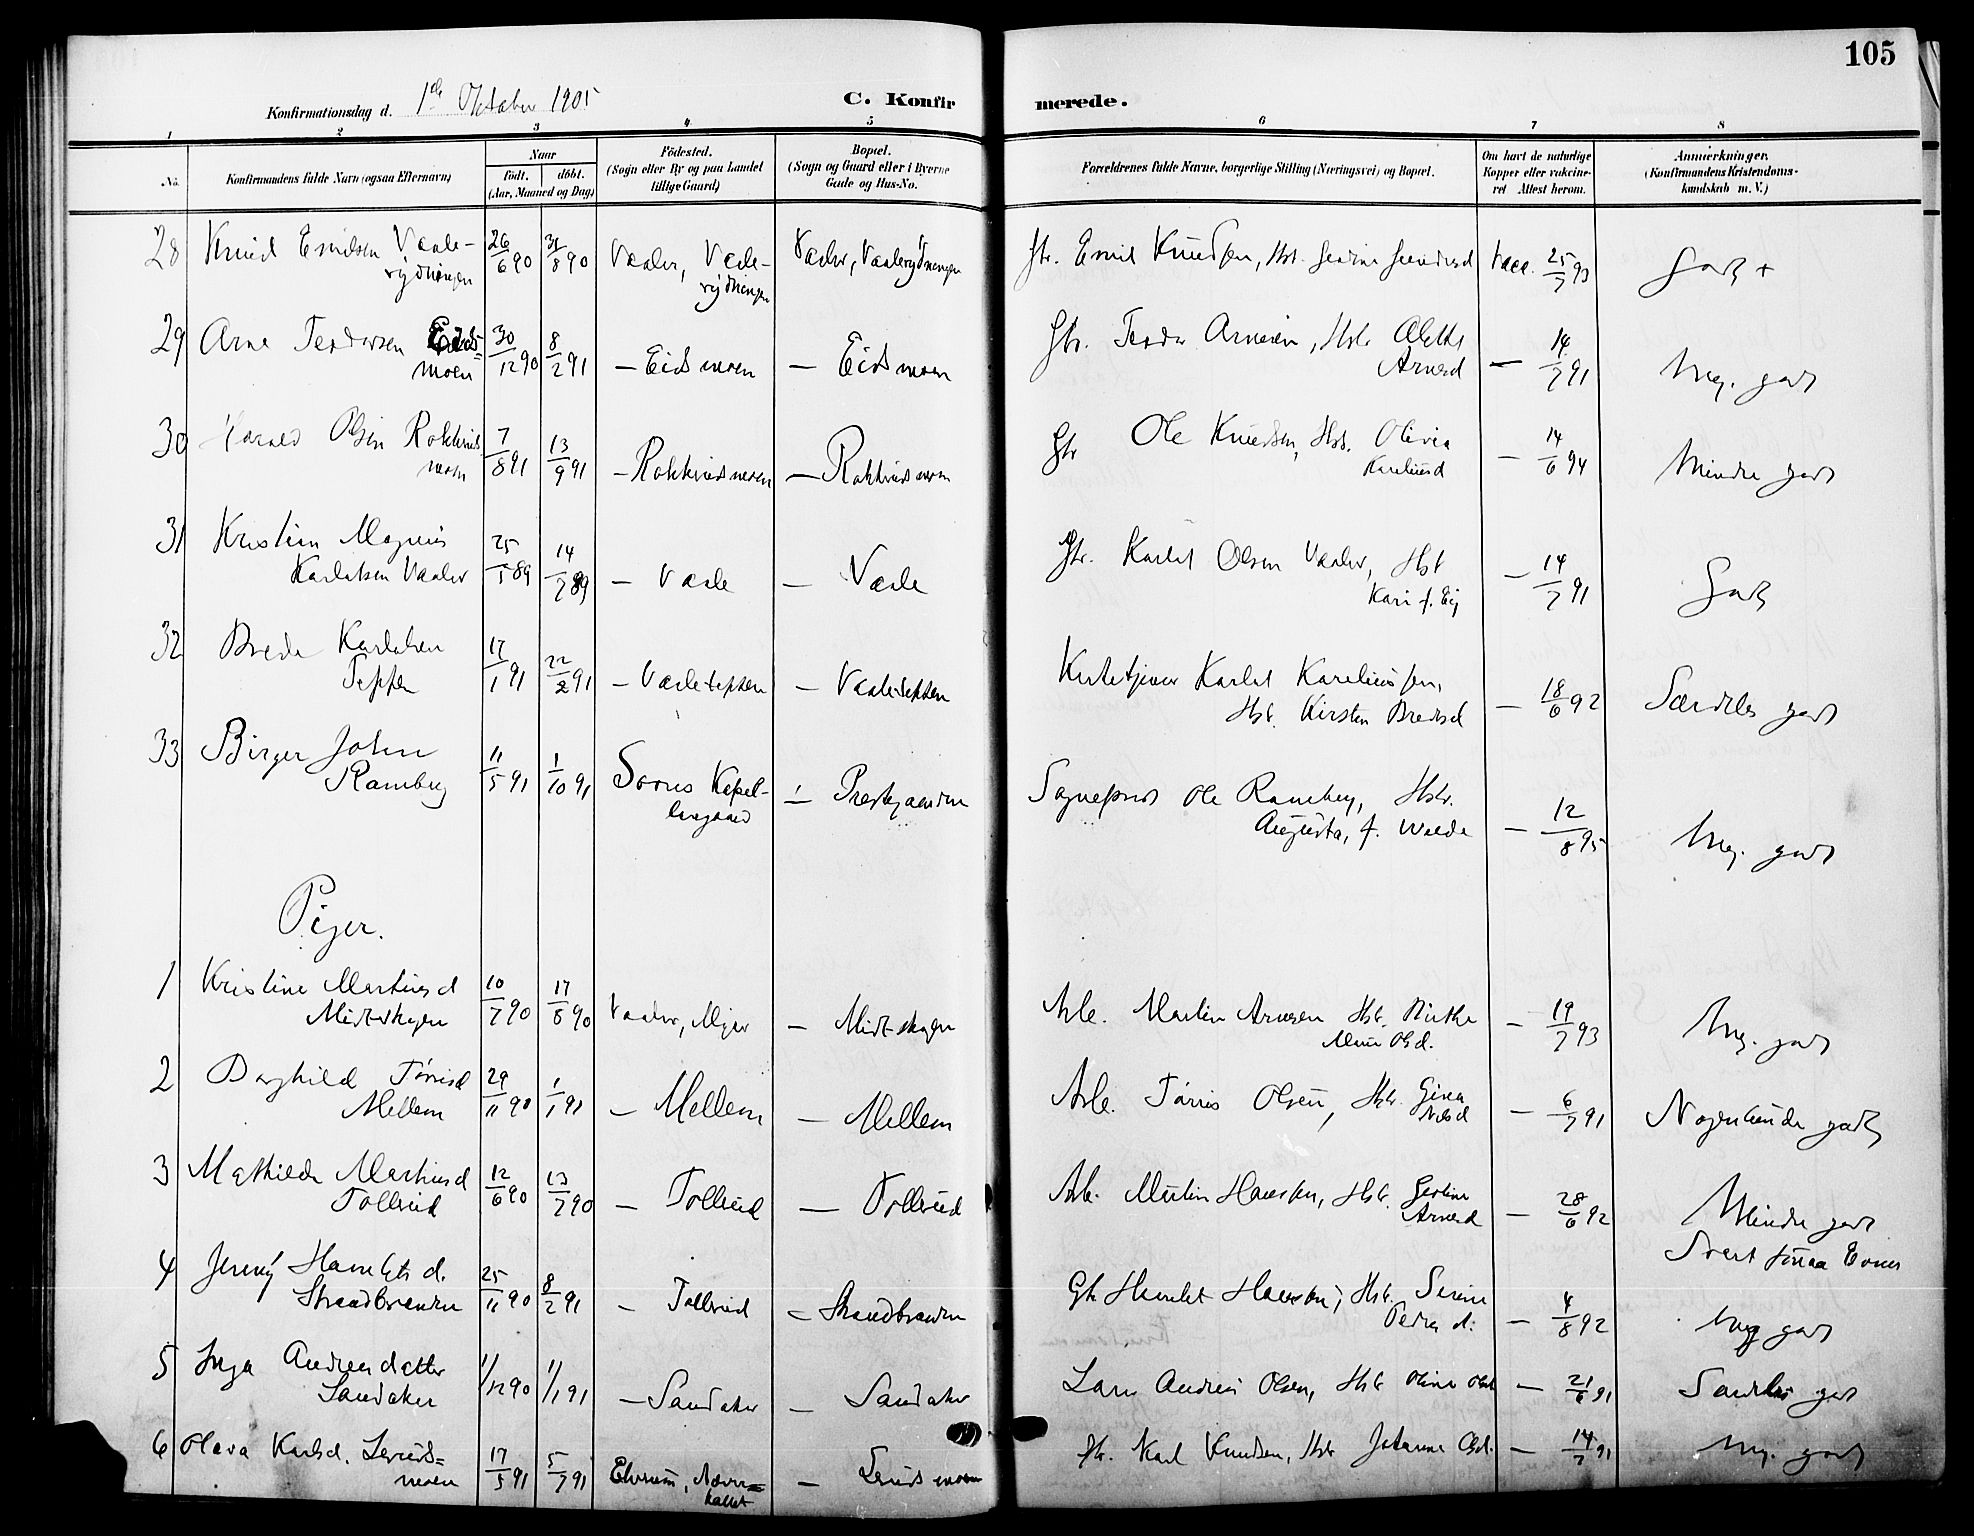 105
Konfirmationsdag d. 1ste Oktober 1905
C. Konfirmerede.
1 2 3 4 5 6 7 8
No.
Konfirmandens fulde Navn (ogsaa Efternavn)
Naar
født. døbt.
(Aar, Maaned og Dag)
Fødested.
(Sogn eller By og paa Landet
tillige Gaard)
Bopæl.
(Sogn og Gaard eller i Byerne
Gade og Hus-No.
Forældrenes fulde Navne, borgerlige Stilling (Næringsvei) og Bopæl.
Om havt de naturlige
Kopper eller vakcine-
ret Attest herom.
Anmærkninger.
(Konfirmandens Kristendoms-
kundskab m. V.)
28 Knud Emilsen Vaale- 26/6 90 31/8 90 Vaaler, Vaale- Vaaler, Vaalerydningen Gbr. Emil Knudsen, Hst. vacc. 25/7 93 Godt +
rydningen rydningen
29 Arne Pedersen Eids- 30/12 90 8/2 91 — Eidsmoen — Eidsmoen Gbr. Peder Arnesen, Hst. — 14/7 91 Meg. godt
moen Arnesd
30 Olsen 7/8 91 13/9 91 Gbr Ole Knudsen, Hst. Olivia — 14/6 94 Mindre godt
moen Kareliusd
31 Kristian Magnus 25/5 89 14/7 89 — Vaale — Vaale Gbr. Karl Olsen Vaaler, Hst — 14/7 91 Godt
Karlsen Vaaler Kari f. Eig
32 Brede Karlsen 17/1 91 22/2 91 — Vaaleteppen — Vaaleteppen Kareliussen, — 18/6 92 Særdeles godt
Teppen Hst. Kirsten Bredesd
33 Birger Johan 11/5 91 1/10 91 Kapel- — Prestegaarden Sogneprest Ole Ramberg, Hst. — 12/8 95 Meg. godt
Ramberg langaard Augusta, f.
Piger.
1 Kristine Martinsd 10/7 90 17/8 90 Vaaler, — Midtskogen Arb. Martin Arnesen Hst. Birthe — 19/7 93 Meg. godt
Midtskogen Olsd.
2 Borghild Tørrisd 29/11 90 1/1 91 — Mellem — Mellem Arb. Tørris Olsen, Hst. Gina — 6/7 91 Nogenlunde godt
Mellem Nilsd
3 Mathilde Martinsd 12/6 90 13/7 90 — Tollerud — Tollerud Arb. Martin Hansen, Hst. — 28/6 92 Mindre godt
Tollerud Arnesd Svært smaa Evner
4 Jenny Hanslets d. 25/11 90 8/2 91 — Tollerud — Strandbraaten Gbr Hansen, Hst. Serine — 4/8 92 Meg godt
Strandbraaten Peders d.
5 Inga Andreasdatter 1/12 90 1/1 91 — Sandaker — Sandaker Lars Andreas Olsen, Hst. Oline Olsd — 21/6 91 Særdeles godt
Sandaker
6 Olava Karlsd. 17/5 91 5/7 91 Elverum, Gbr. Karl Knudsen, Hst. Johanne Olsd. — 14/7 91 Meg. godt
moen